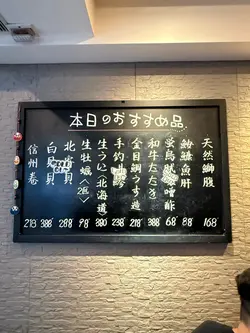 本日のおすすめ品
天然鰤腹 168
鮟鱇魚肝 88
螢烏賊 味噌酢 68
和牛たたき 388
金目鯛うす造 218
手釣 380
生うに(北海道) 380
生牡蠣<2匹> 98
北 貝 288
白 貝 388
信州巻 213